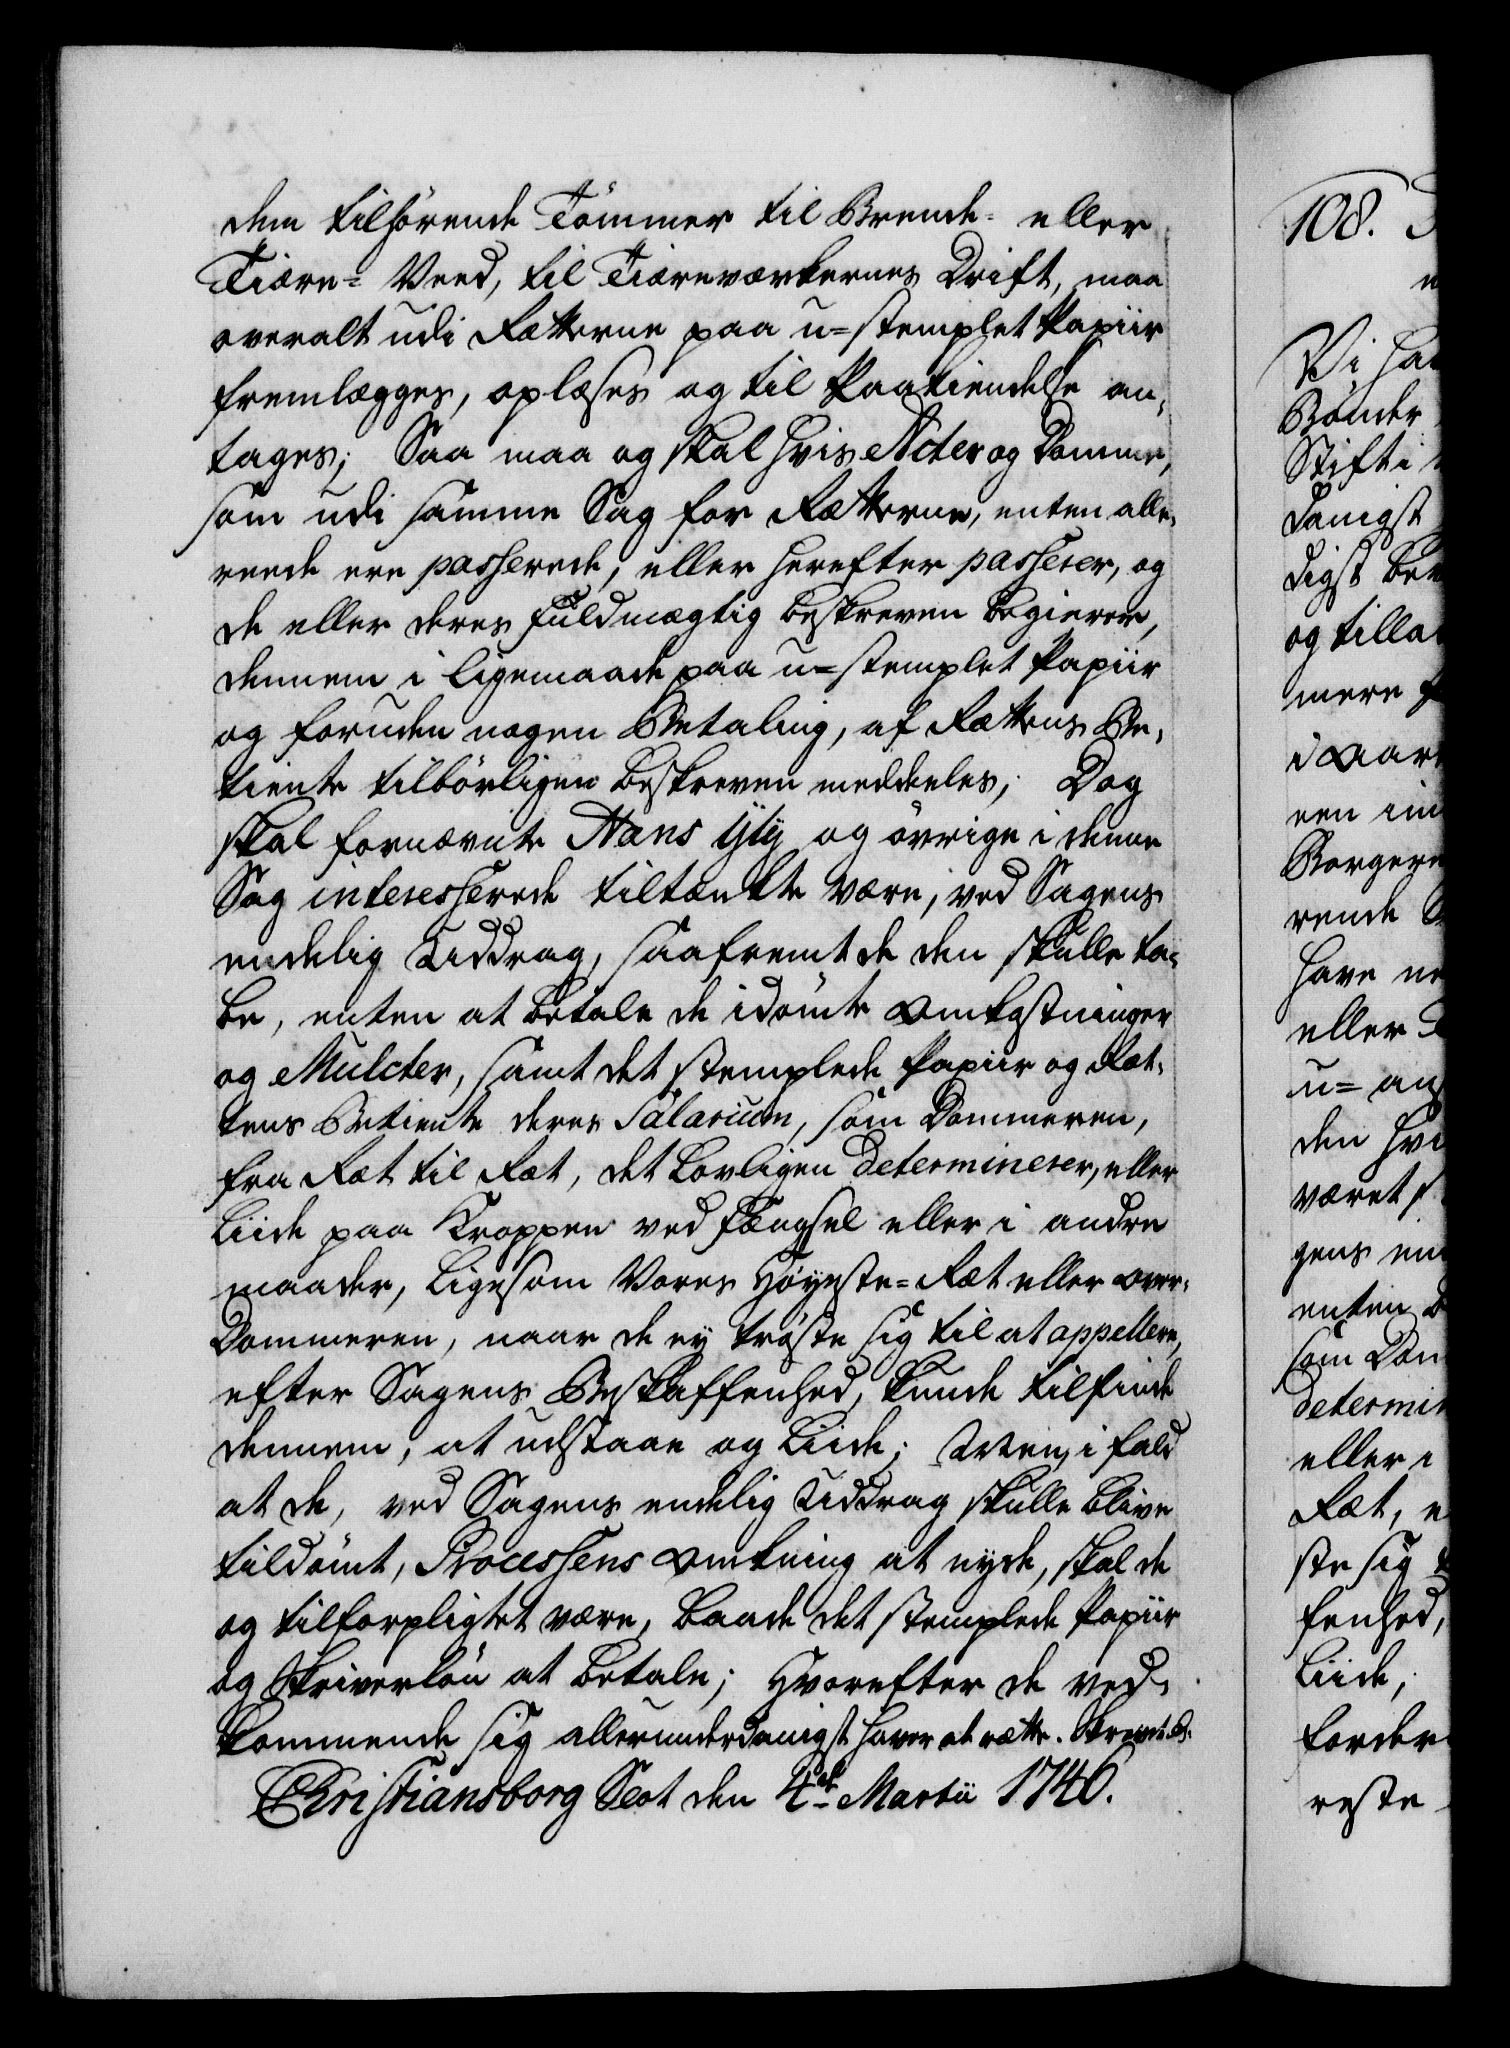 dem tilhörende Tömmer til Brende- eller
Tiære- Veed, til Tiæreværkernes Drift, maa
overalt udi Rætterne paa u-stemplet Papiir
fremlægges, oplæses og til Paakiendelse an-
tages; Saa maa og skal hvis Acter og Domme,
som udi samme Sag for Rætterne, enten alle-
reede ere passerede, eller herefter passerer, og
de eller deres Fuldmægtig beskreven begierer,
dennem i ligemaade paa u-stemplet Papiir
og foruden nogen Betaling, af Rættens Be-
tiente tilbörligen beskreven meddeeles; Dog
skal fornævnte og övrige i denne
Sag interesserede tiltænkte være, ved Sagens
endelig Uddrag, saafremt de den skulle ta-
be, enten at betale de idömte Omkostninger
og Mulcter, samt det stemplede Papiir og Ræt-
tens Betiente deres Salarium, som Dommeren,
fra Ræt til Ræt, det Lovligen determinerer, eller
Liide paa Kroppen ved Fængsel eller i andre
maader, Ligesom Vores Höyeste-Ræt eller Over-
Dommeren, naar de ey tröste sig til at appellere,
efter Sagens Beskaffenhed, kunde tilfinde
dennem, at udstaae og Liide; Men, i fald
at de, ved Sagens endelig Uddrag skulle blive
tildömt, Processens Omkning at nyde, skal de
og tilforpligtet være, baade det stemplede Papiir
og Skriverlön at betale; Hvorefter de ved-
kommende sig allerunderdanigst haver at rætte. Skrevet &.
Christiansborg Slot den 4de Martii 1746.
108.
Vi ha
Bönder
Stift i
danigst
digst be
og tilla
mere
i Aar
een im
Borgere
rende S
have ne
eller
u- an
den hvi
været s
gens en
enten b
som Dom
determin
eller i
Ræt, e
ste sig t
fenhed,
Liide,
forder
reste